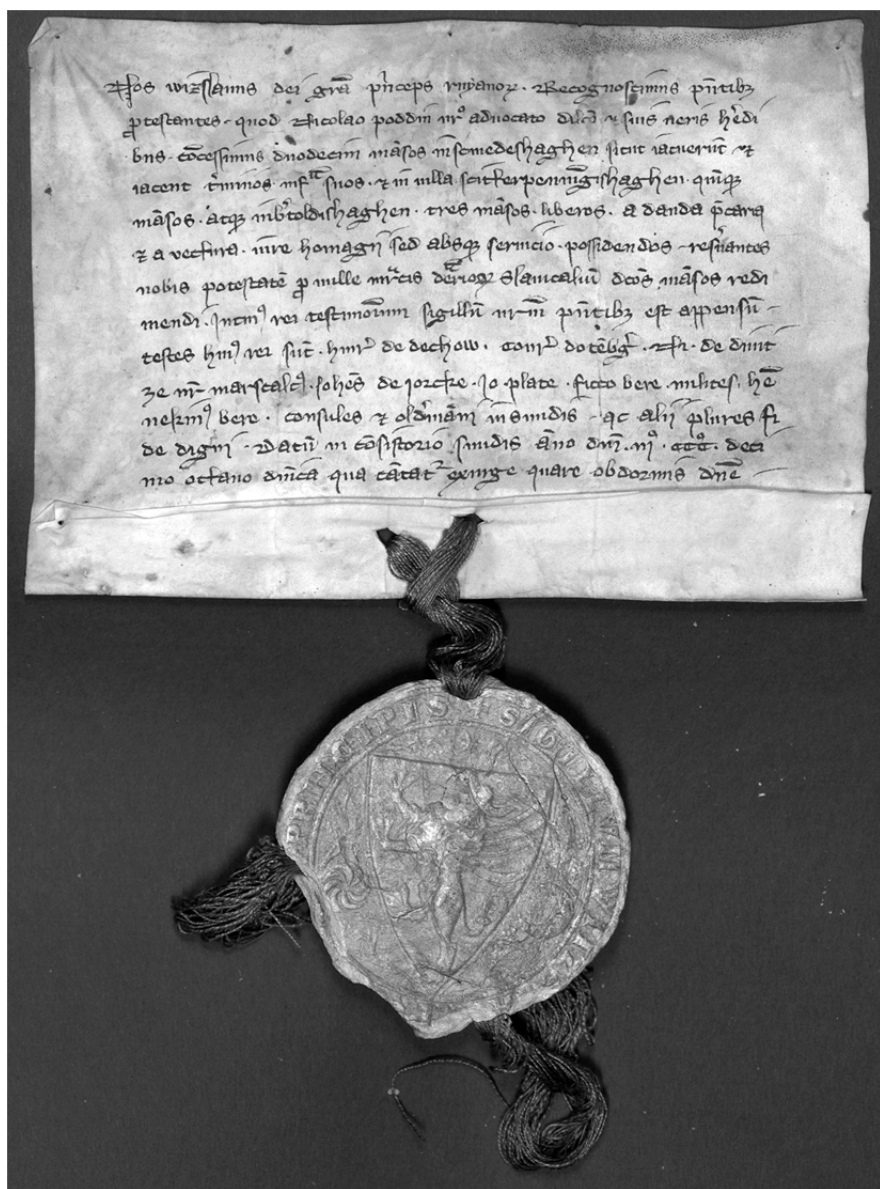 Nos wizslauus dei grā p̄nceps ruyanoꝝ. Recognoscimus p̄ntibꝫ
ꝓtestantes quod Nicolao poddin nr̄o aduocato dilc̄o ⁊ suis ueris h̄edi
bus. cōcessimus duodecim māsos in smedeshaghen sicut iacuerūt ⁊
iacent t̄minos infra suos. ⁊ in uilla scitkerpennīgishaghen. quīqꝫ
māsos. atqꝫ in b̄toldishaghen. tres māsos. liberos. a danda p̄caria
⁊ a vectura. iure homagii sed absqꝫ seruicio. possidendos. res̄uantes
nobis potestatē ꝓ mille mr̄cis den̄rioꝝ slauicaliū dc̄os māsos redi
mendi. In cuiꝰ rei testimoniūm sigillū nr̄m p̄ntibꝫ est appensū
testes huiꝰ rei sūt. hinr̄ de dechow. conr̄ dotēbḡ. Ni. de
ze nr̄ marscalcꝰ. Johēs de iorcke. Jo plate. ficko bere. milites. hē
nekinꝰ bere. consules ⁊ old̄māni in sundis. ac alii plures fi
de digni. Datū in cōsistorio sundis āno dn̄i. mº. cccº. deci
mo octauo dn̄ica qua cātat᷑ exurge quare obdormis dn̄e
PRINCIPIS + SIGILLVM WIZ